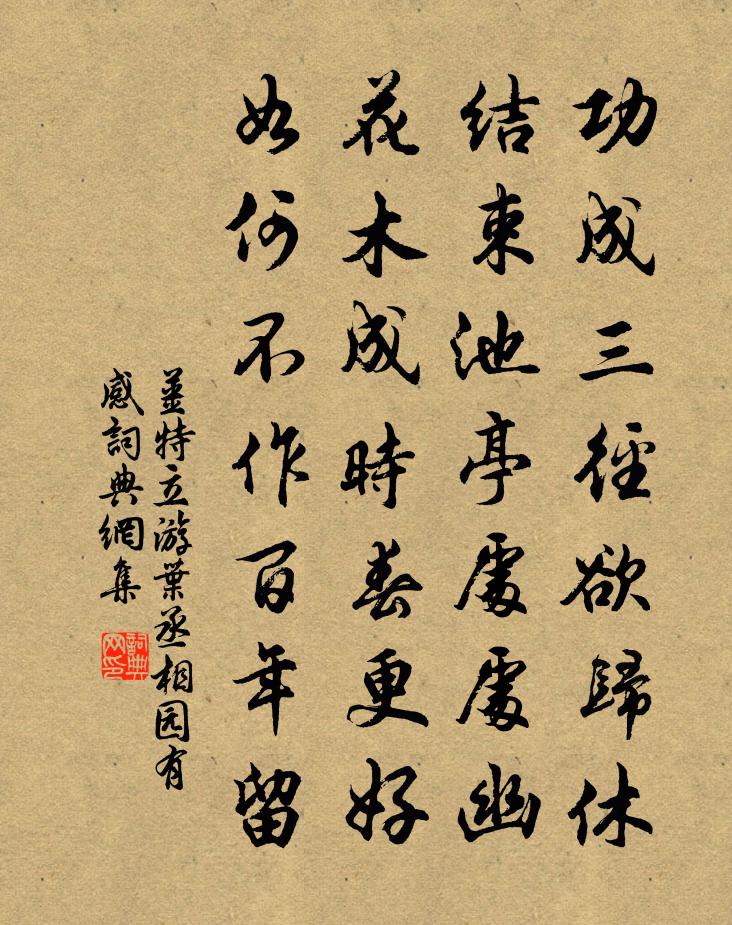 功成三徑欲歸休
結束池亭處處幽
花木成時春更好
如何不作百年留
薑特立游葉丞相园有
感詞典網集
詞典
网印